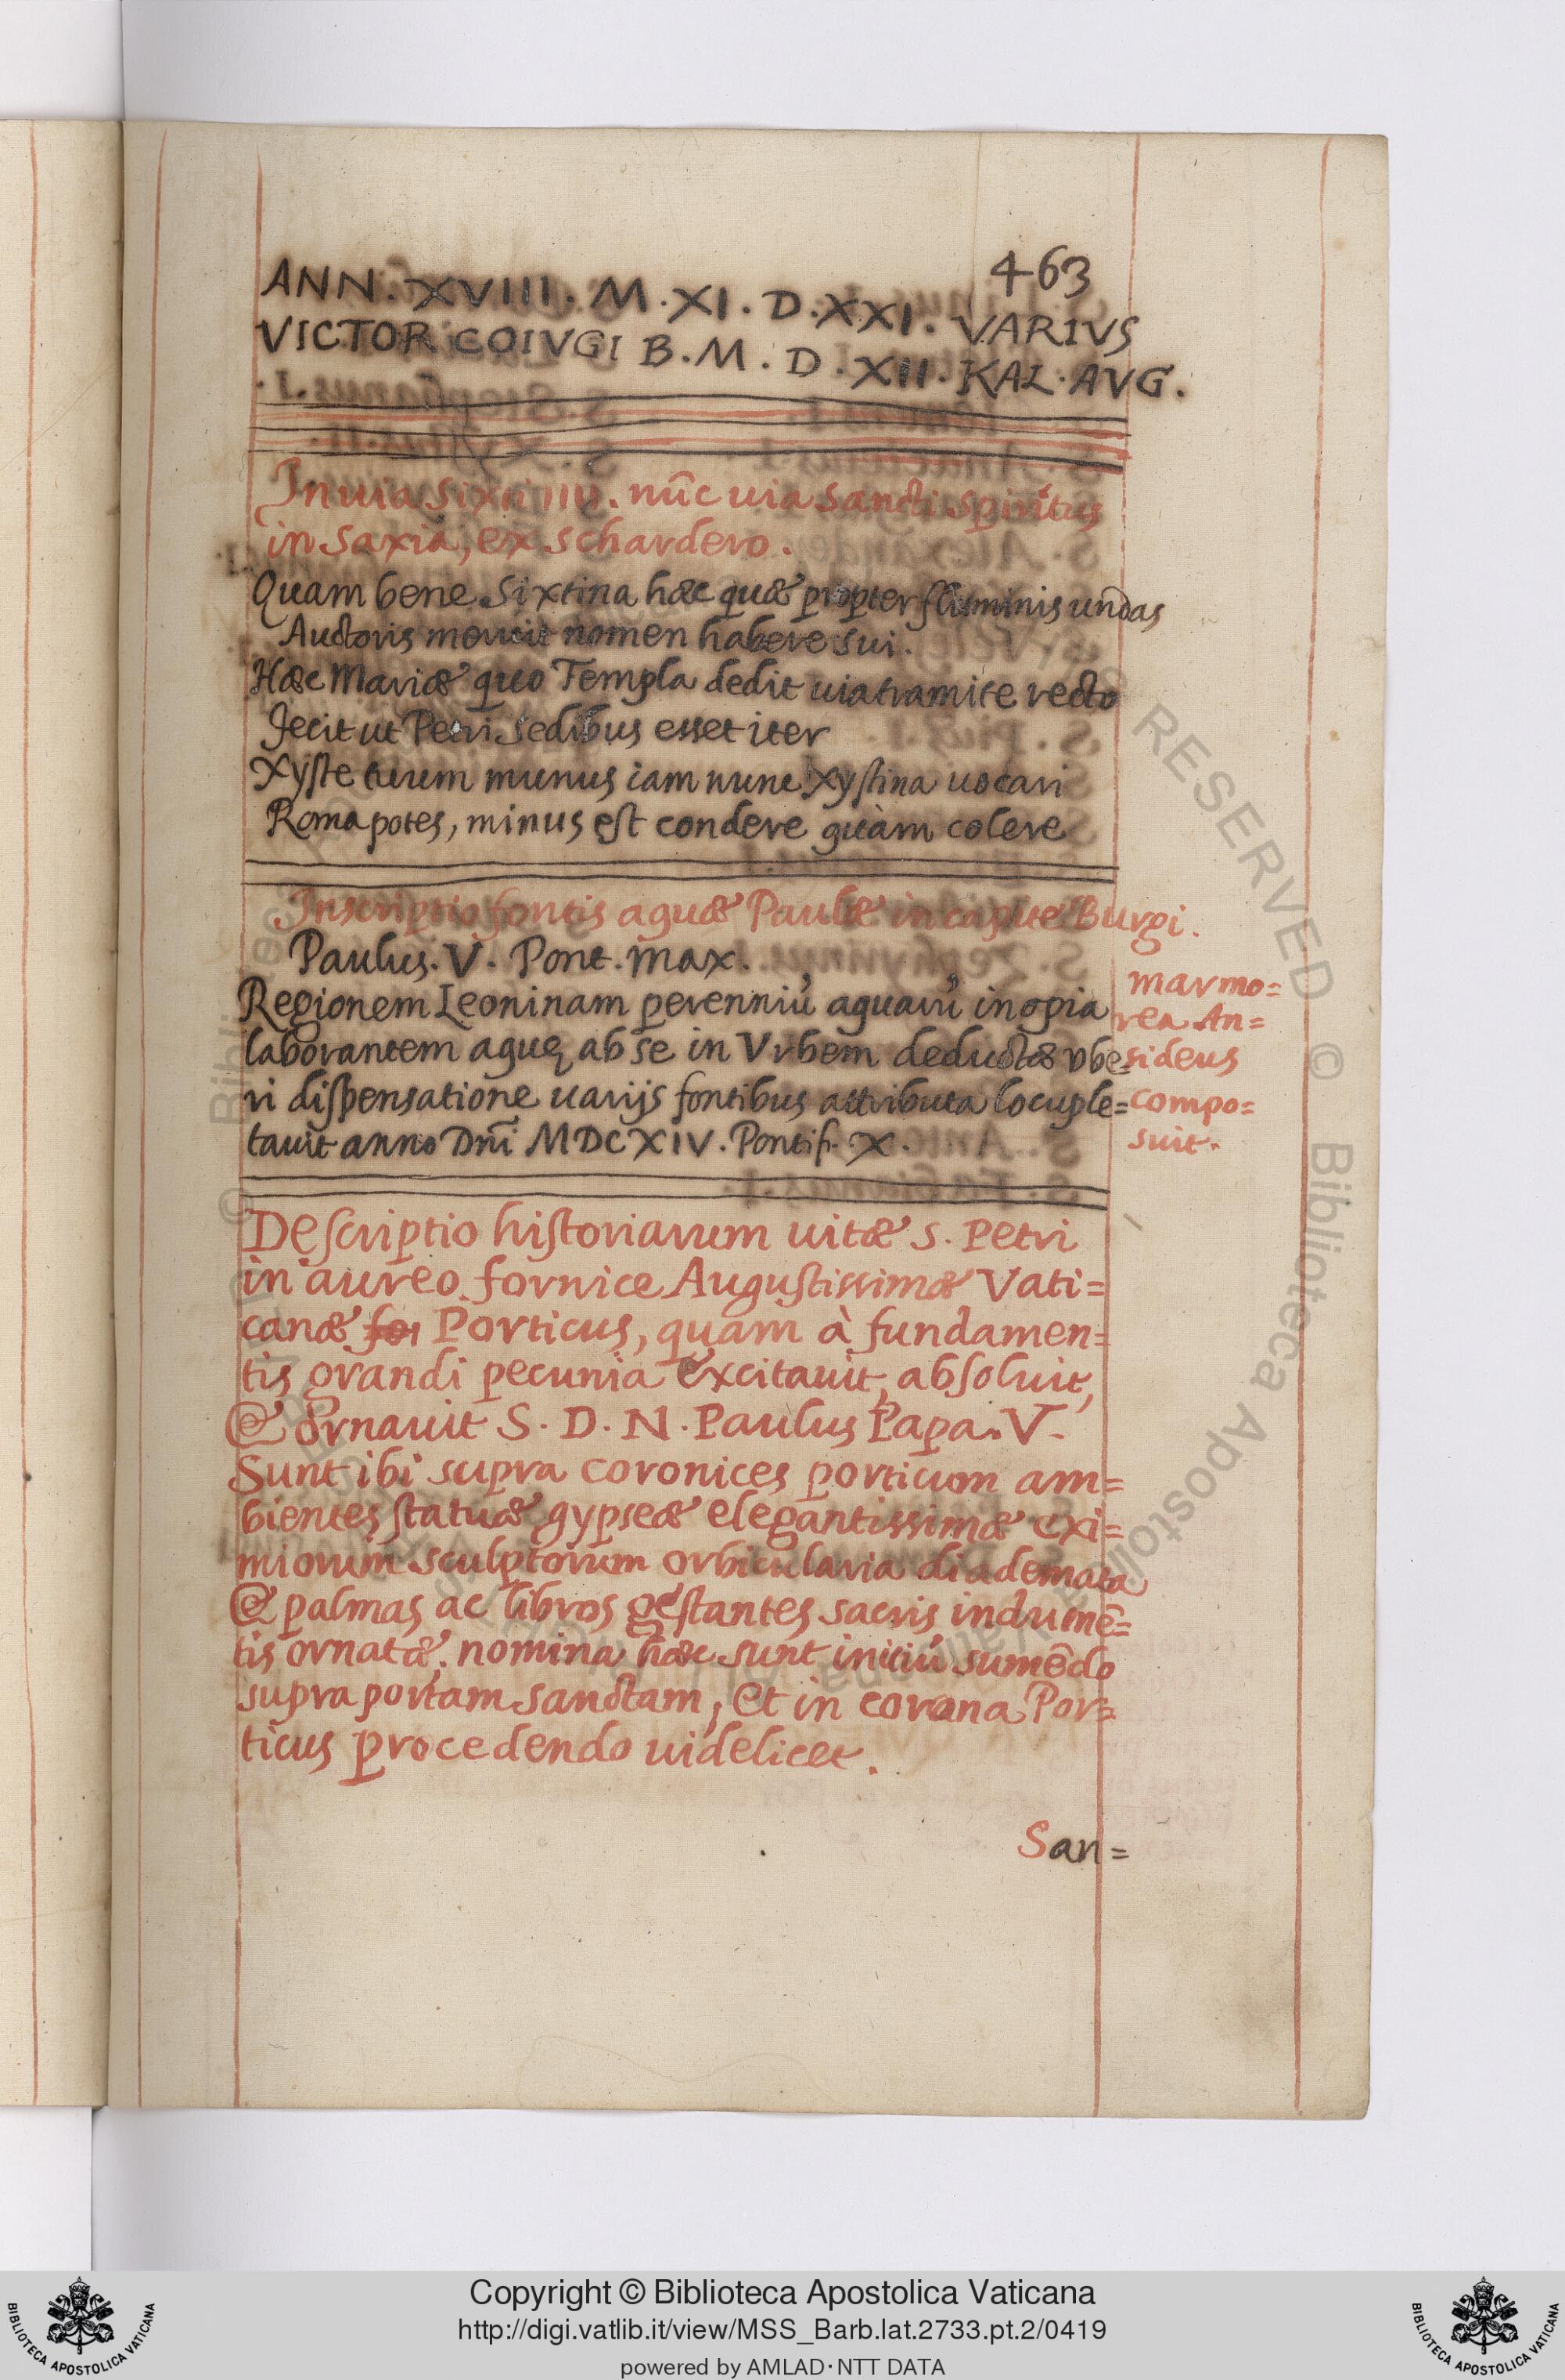 463
ANN. XVIII. M. XI. D. XXI. VARIVS
VICTOR COIVGI B. M. D. XII. KAL. AVG.
In uia Sixti IIII. nūc uia Sancti Spiritus
in Saxia, ex Schardero.
Quam bene Sixtina hæc quæ propter fluminis undas
Auctoris meruit nomen habere sui.
Hæc Mariæ quo Templa dedit uia tramite recto
Jecit ut Petri sedibus esset iter
Xyste tuum munus iam nunc Xystina uocari
Roma potes, minus est condere quàm colere
Inscriptio fontis aquæ Paulæ in capite Burgi.
Paulus. V. Pont. max.
Regionem Leoninam perenniū aquarū inopia
laborantem aquę ab se in Vrbem deductæ vbe=
ri dispensatione uarijs fontibus attributa locuple=
tauit anno Dn̄i MDCXIV. Pontif. X.
marmo=
rea An=
sideus
compo=
suit.
Descriptio historiarum uitæ S. Petri
in aureo fornice Augustissimæ Vati=
canæ for Porticus, quam à fundamen=
tis grandi pecunia excitauit, absoluit,
& ornauit S. D. N. Paulus Papa. V.
Sunt ibi supra coronices porticum am=
bientes statuæ gypseæ elegantissimæ exi=
miorum sculptorum orbicularia diademata
& palmas ac libros gestantes sacris indumē=
tis ornatæ. nomina hæc sunt initiū sumēdo
supra portam sanctam, et in corona Por=
ticus procedendo uidelicet.
San=
RESERVED © Biblioteca Apostolica Vaticana
BIBLIOTECA APOSTOLICA VATICANA
Copyright © Biblioteca Apostolica Vaticana
http://digi.vatlib.it/view/MSS_Barb.lat.2733.pt.2/0419
powered by AMLAD·NTT DATA
BIBLIOTECA APOSTOLICA VATICANA